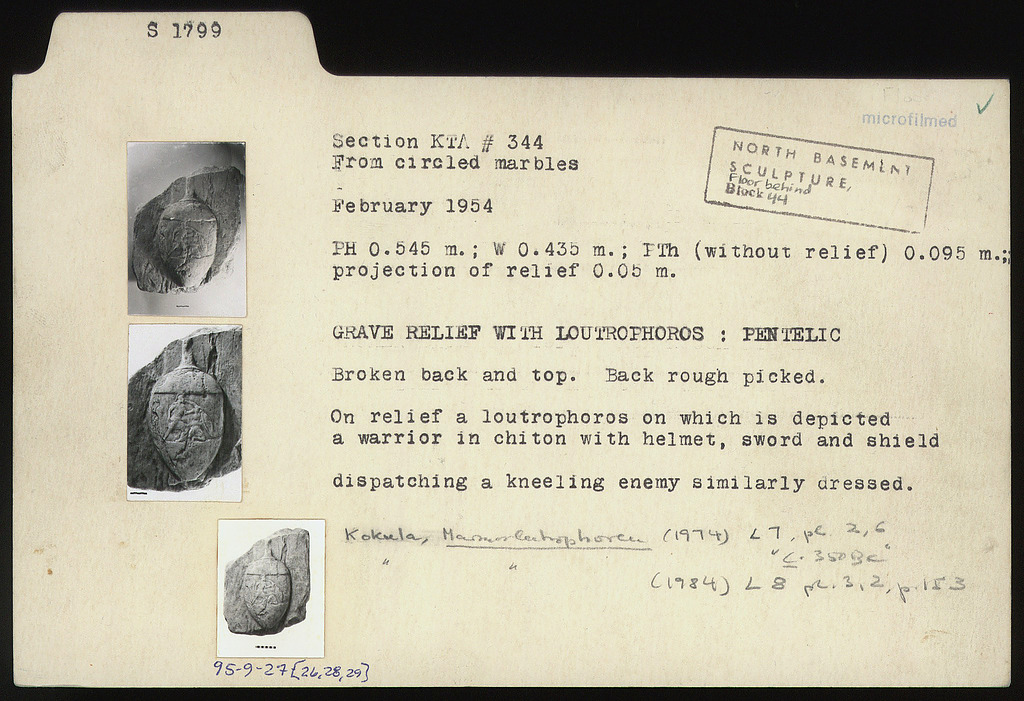 S 1799
microfilmed
Section KTA # 344
From circled marbles
NORTH BASEMENT
SCULPTURE,
Floor behind
Block 44
February 1954
PH 0.545 m.; W 0.435 m.; PTh (without relief) 0.095 m.;
projection of relief 0.05 m.
GRAVE RELIEF WITH LOUTROPHOROS : PENTELIC
Broken back and top. Back rough picked.
On relief a loutrophoros on which is depicted
a warrior in chiton with helmet, sword and shield
dispatching a kneeling enemy similarly dressed.
Kokula, Marmorlutrophoren (1974) L 7, pl. 2,6
"c. 350 BC"
" " (1984) L 8 pl. 3,2, p. 153
95-9-27 [26,28,29]